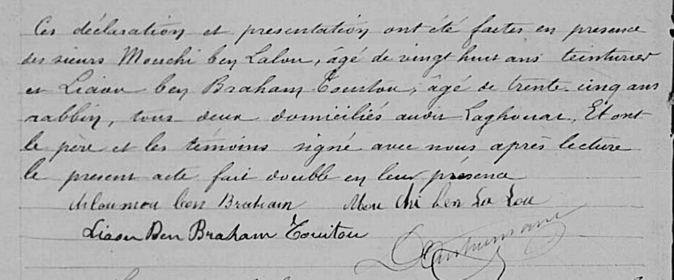 Ces déclaration et présentation ont été faites en présence
des sieurs Mouchi ben Lalou, âgé de vingt huit ans teinturier
et Liaou ben Braham Touitou, âgé de trente-cinq ans
rabbin, tous deux domiciliés audit Laghouat. Et ont
le père et les témoins signé avec nous après lecture
le présent acte fait double en leur présence
ben Braham Mou chi ben La Lou
Liaou Ben Braham Touitou